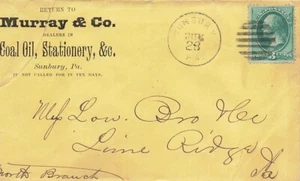 RETURN TO
Murray & Co.
DEALERS IN
Coal Oil, Stationery, &c.
Sunbury, Pa.
IF NOT CALLED FOR IN TEN DAYS.
SUNBURY
28
PA
Low Bro
Lime Ridge
Pa
North Branch